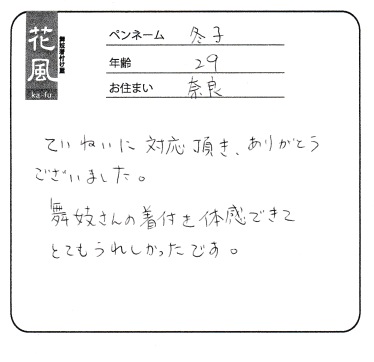 花風
舞妓着付け屋
ka-fu
ペンネーム 冬子
年齢 29
お住まい 奈良
ていねいに対応頂き、ありがとう
ございました。
舞妓さんの着付を体感できて
とてもうれしかったです。